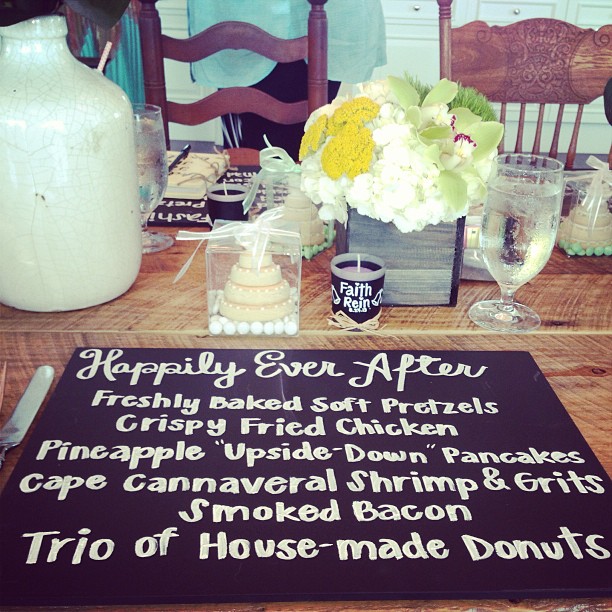 Faith
&
Rein
Happily Ever After
Freshly Baked Soft Pretzels
Crispy Fried Chicken
Pineapple "Upside-Down" Pancakes
Cape Cannaveral Shrimp & Grits
Smoked Bacon
Trio of House-made Donuts